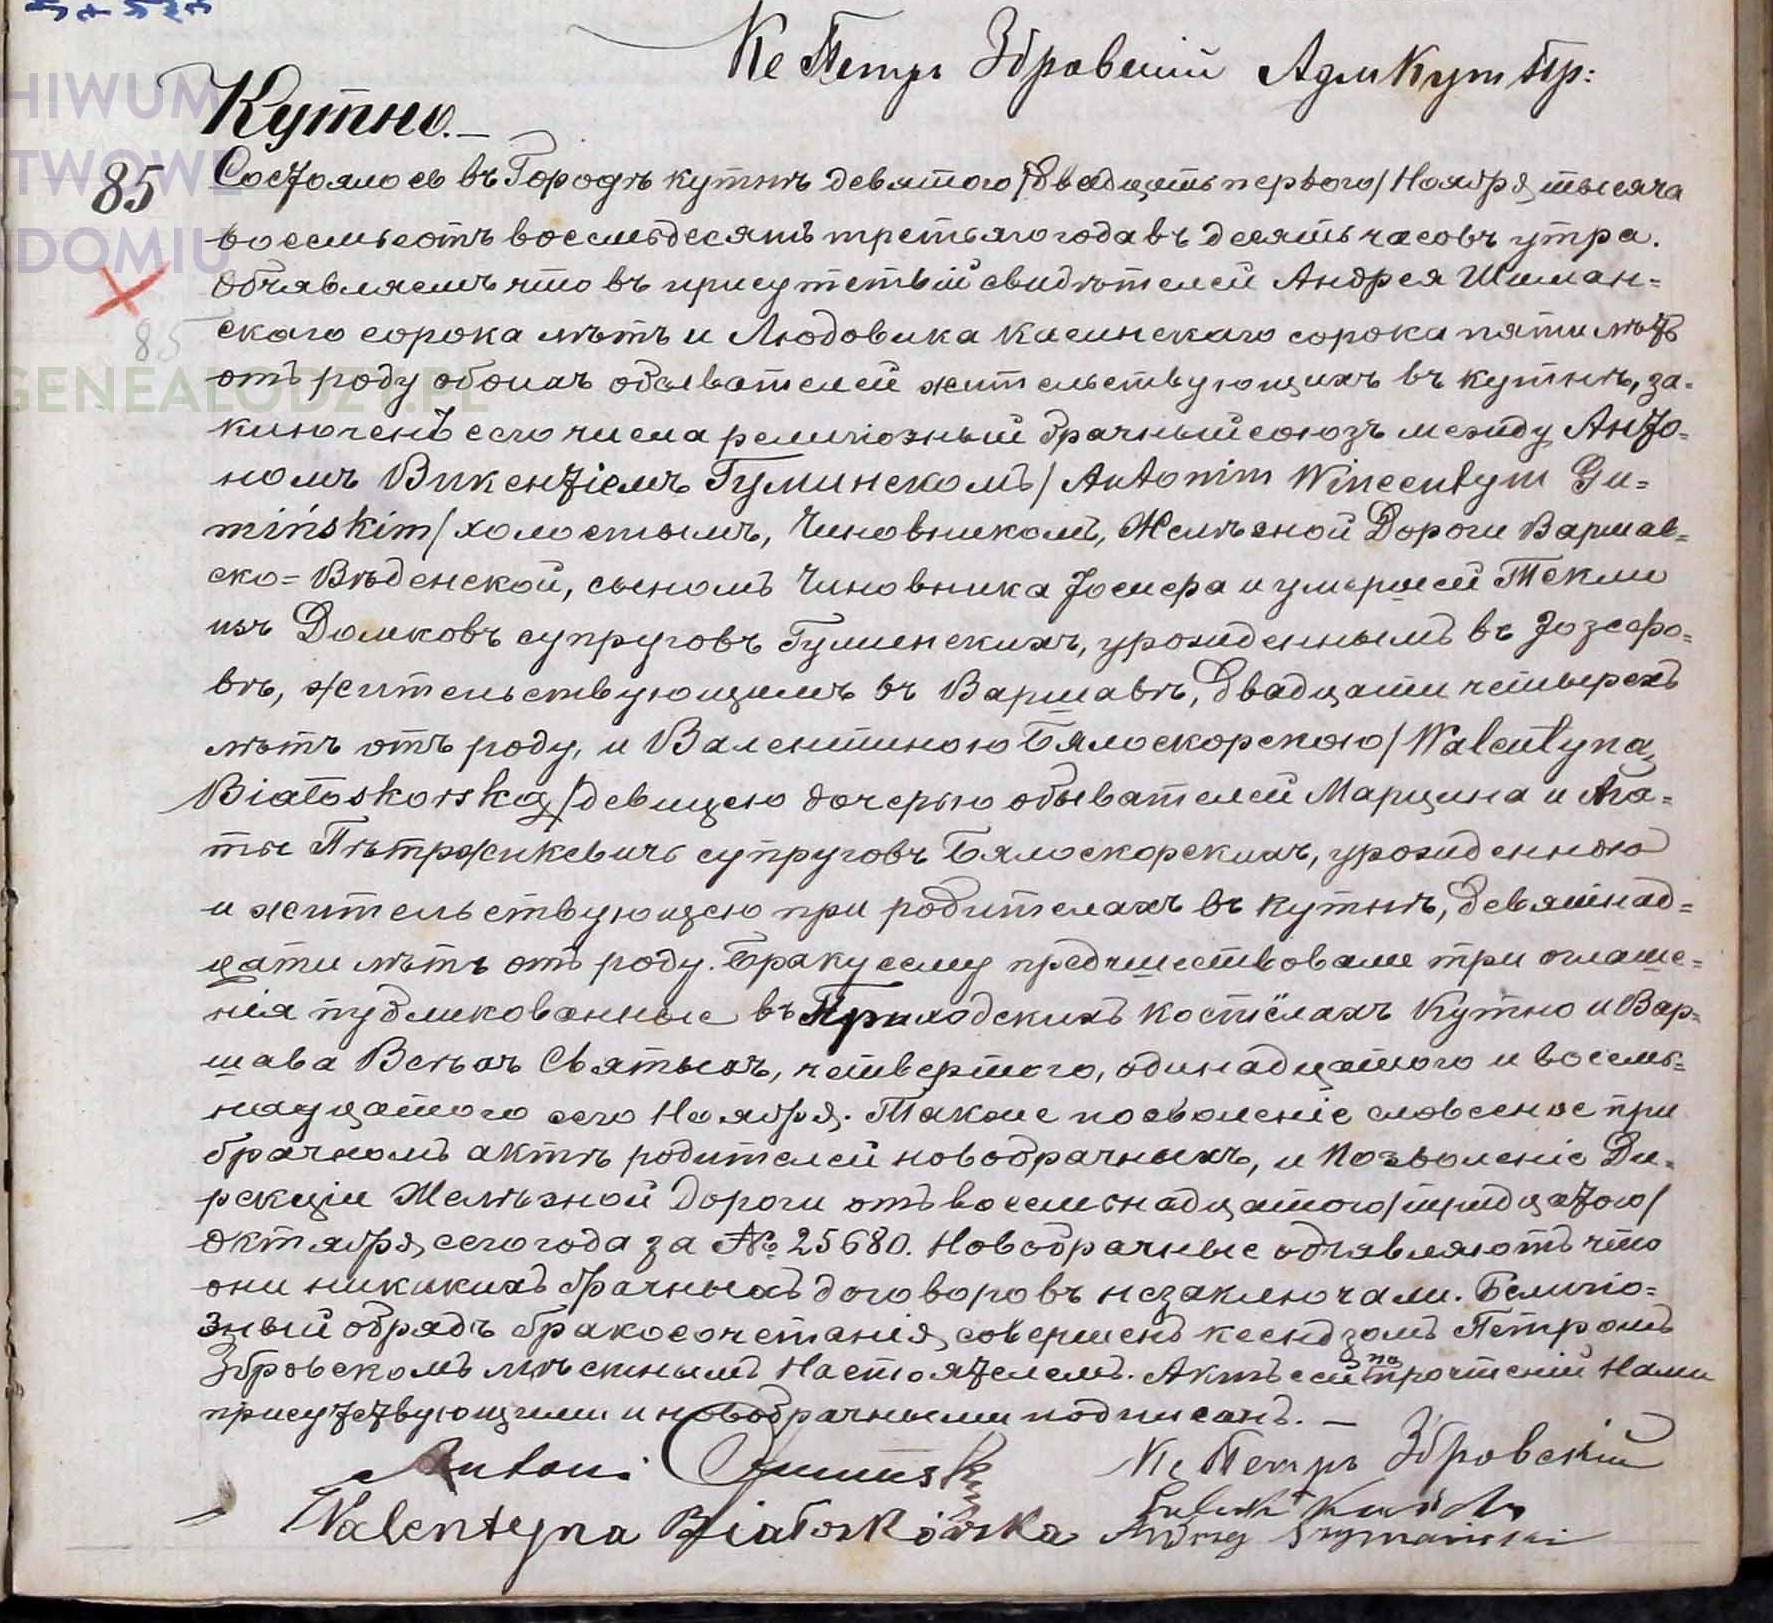 Кс Петръ Збровскій Адм Кутн Пр:
Кутно.—
85
Состоялось въ Городѣ Кутнѣ девятого /двадцать первого/ Ноября тысяча
восемьсотъ восемьдесятъ третьяго года въ десять часовъ утра.
Объявляемъ что въ присутствіи свидѣтелей Андрея Шиман=
85
ского сорока лѣтъ и Людовика Касинскаго сорока пяти лѣтъ
отъ роду обоихъ обывателей жительствующихъ въ Кутнѣ, за=
ключенъ сего числа религіозный брачный союзъ между Анто=
номъ Викентіемъ Гуминскомъ / Antonim Wincentym Gu=
mińskim / холостымъ, Чиновникомъ, Желѣзной Дороги Варшав=
ско=Вѣденской, сыномъ Чиновника Іосифа и умершей Текли
изъ Домковъ супруговъ Гуминскихъ, урожденнымъ въ Іозефо=
вѣ, жительствующимъ въ Варшавѣ, двадцати четырехъ
лѣтъ отъ роду, и Валентиною Бялоскорскою / Walentyną
Białoskorską / девицею дочерью обывателей Марцина и Ага=
ты Пѣтржикевичъ супруговъ Бялоскорскихъ, урожденною
и жительствующею при родителахъ въ Кутнѣ, девятнад=
цати лѣтъ отъ роду. Браку сему предшествовали три оглаше=
нія публикованные въ Приходскихъ костёлахъ Кутно и Вар=
шава Всѣхъ Святыхъ, четвертого, одинадцатого и восемь=
надцатого сего Ноября. Также позволеніе словесное при
брачномъ актѣ родителей новобрачныхъ, и Позволеніе Ди=
рекціи Желѣзной Дороги отъ восемьнадцатого /тридцатого/
Октября сего года за № 25680. Новобрачные объявляютъ что
они никикихъ брачныхъ договоровъ незаключали. Религіо=
зный обрядъ бракосочетанія совершенъ ксендзомъ Петромъ
Збровскомъ мѣстнымъ Настоятелемъ. Актъ сей по прочтеніи Нами
присутствующими и новобрачными подписанъ. —
Antoni Gumiński Кс Петръ Збровскій
Walentyna Białoskórska Andrzej Szymański
ARCHIWUM
PAŃSTWOWE
W RADOMIU
GENEALODZY.PL